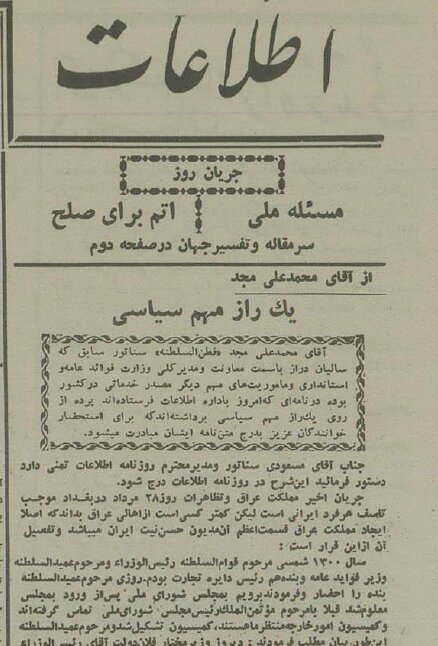 اطلاعات
جریان روز
مسئله ملی
اتم برای صلح
سرمقاله وتفسیرجهان درصفحه دوم
از آقای محمدعلی مجد
یك راز مهم سیاسی
آقای محمدعلی مجد «فطن‌السلطنه» سناتور سابق که
سالیان دراز باسمت معاونت ومدیرکلی وزارت فوائد عامه و
استانداری وماموریت‌های مهم دیگر مصدر خدماتی درکشور
بوده درنامه‌ای که‌امروز باداره اطلاعات فرستاده‌اند پرده از
روی یك‌راز مهم سیاسی برداشته‌اندکه برای استحضار
خوانندگان عزیز بدرج متن‌نامه ایشان مبادرت میشود.
جناب آقای مسعودی سناتور ومدیرمحترم روزنامه اطلاعات تمنی دارد
دستور فرمائید این‌شرح در روزنامه اطلاعات درج شود.
جریان اخیر مملکت عراق وتظاهرات روز۲۸ مرداد دربغداد موجب
تاسف هرفرد ایرانی است لیکن کمتر کسی‌است ازاهالی عراق بداندکه اصلا
ایجاد مملکت عراق قسمت‌اعظم آن‌مدیون حسن‌نیت ایران میباشد وتفصیل
آن ازاین قرار است :
سال ۱۳۰۰ شمسی مرحوم قوام‌السلطنه رئیس‌الوزراء ومرحوم‌عمیدالسلطنه
وزیر فواید عامه وبنده‌هم رئیس دایره تجارت بودم.روزی مرحوم‌عمیدالسلطنه
بنده را احضار وفرمودندبرویم بمجلس شورای ملی .پس‌از ورود بمجلس
معلوم‌شد قبلا بامرحوم مؤتمن‌الملك‌رئیس‌مجلس شورای‌ملی تماس گرفته‌اند
وکمیسیون امورخارجه‌منتظرماهستند،کمیسیون تشکیل‌شدومرحوم‌عمیدالسلطنه
این‌طور بیان مطلب فرمودند : دیروز وزیرمختار فلان‌دولت آقای رئیس‌الوزراء